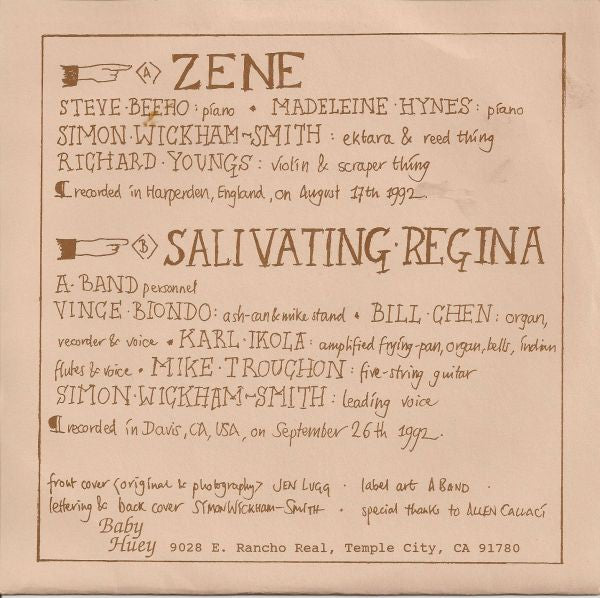 A ZENE
STEVE·BEEHO: piano • MADELEINE·HYNES: piano
SIMON·WICKHAM~SMITH: ektara & reed thing
RICHARD·YOUNGS: violin & scraper thing
¶ recorded in Harpenden, England, on August 17th 1992.
B SALIVATING·REGINA
A·BAND personnel
VINCE·BIONDO: ash-can & mike stand • BILL·CHEN: organ,
recorder & voice • KARL·IKOLA: amplified frying-pan, organ, bells, indian
flutes & voice • MIKE·TROUGHON: five-string guitar
SIMON·WICKHAM~SMITH: leading voice
¶ recorded in Davis, CA, USA, on September 26th 1992.
front cover <original & photography> JEN LUGG · label art A BAND ·
lettering & back cover SIMON WICKHAM~SMITH · special thanks to ALLEN CALLACI
Baby
Huey 9028 E. Rancho Real, Temple City, CA 91780